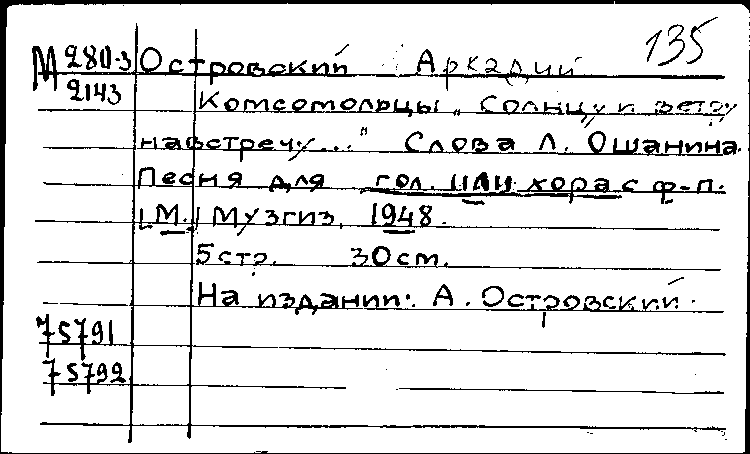 135
М 280-3 Островский Аркадий
2143
Комсомольцы „Солнцу и ветру
навстречу..." Слова Л. Ошанина.
Песня для гол. или хора с ф-п.
[М.] Музгиз, 1948.
5 стр. 30 см.
На издании: А. Островский.
75791
75792